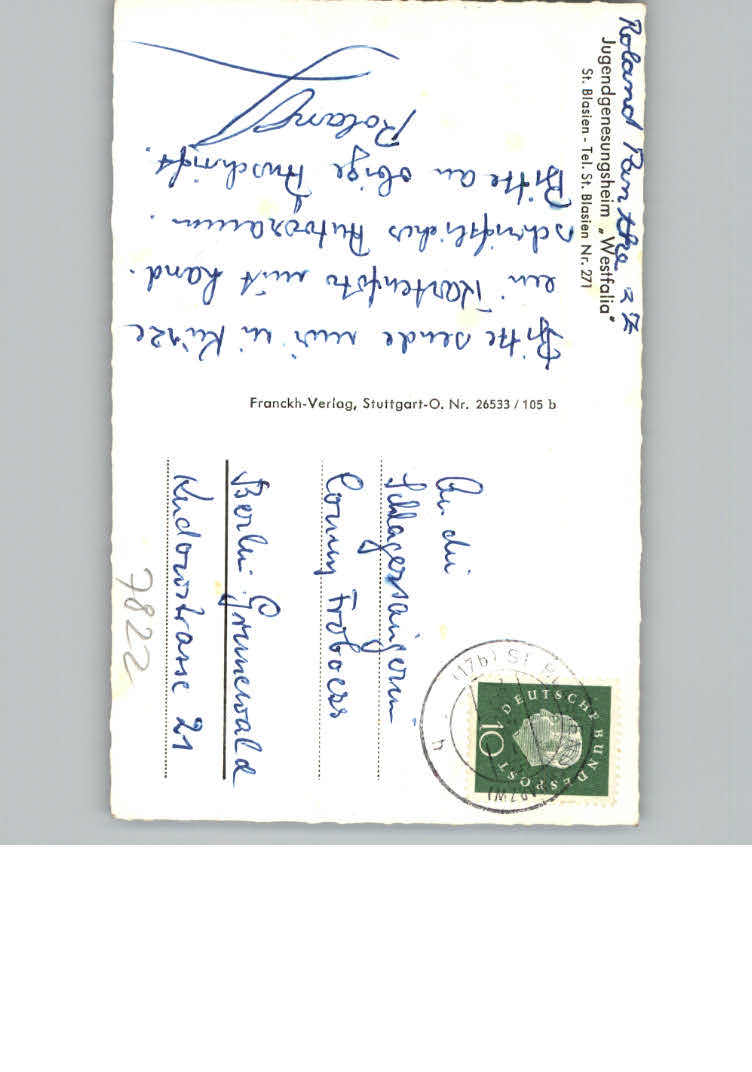 Roland Panthe z Z
Jugendgenesungsheim „Westfalia"
St. Blasien - Tel. St. Blasien Nr. 271
Bitte sende mir in Kürze
ein Kartenfoto mit hand.
schriftliches Autogramm.
Bitte an obige Anschrift.
Roland
Franckh-Verlag, Stuttgart-O. Nr. 26533 / 105 b
An die
Schlagersängerin
Conny Froboess
Berlin-Grunewald
Kudowstrasse 21
7822
(17b) ST.
h
DEUTSCHE BUNDESPOST
10